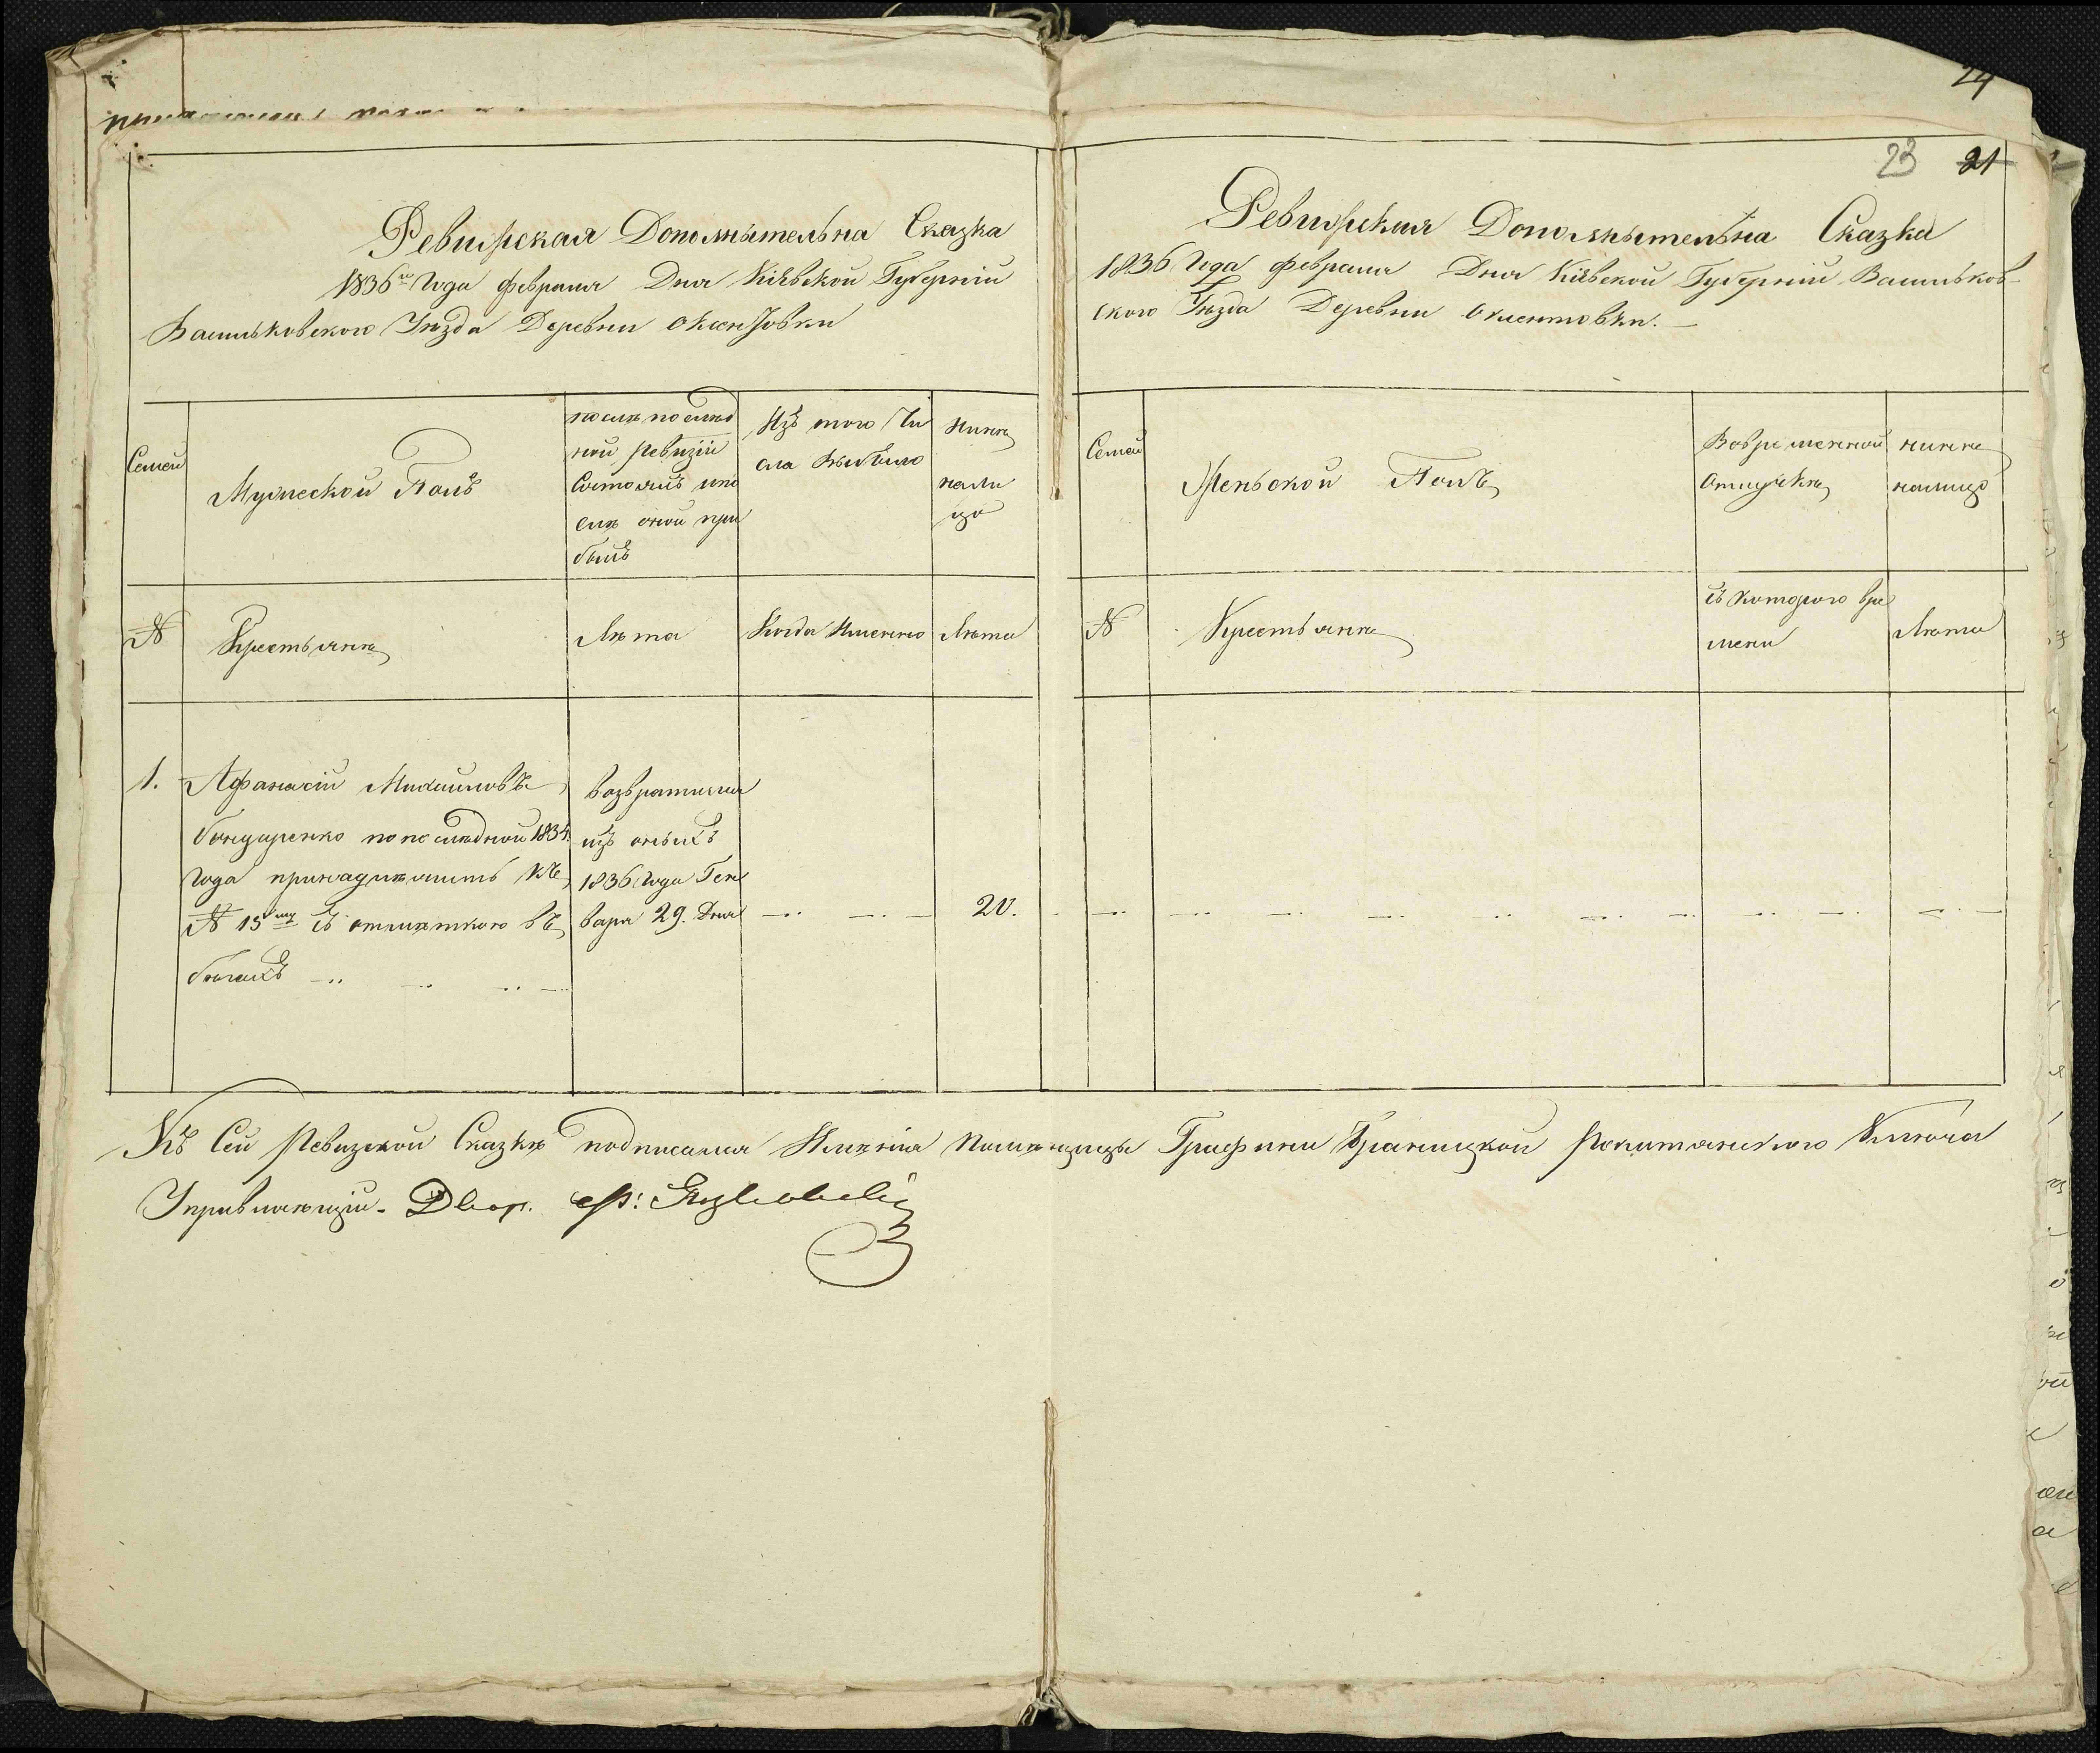 24
23 21
Ревизская Дополнытельна Сказка
1836го Года февраля Дня Кіѣвской Губерніи
Васильковского Уѣзда Деревни Оклентовки
Семей
Мужеской Полъ
после послед
ной ревизіи
Состоялъ ипо
слѣ оной при
былъ
Изъ того Чи
сла выбыло
нинѣ
нали
цо
№
Крестьянѣ
Лѣта
Когда Именно
Лѣта
1.
Афанасій Михайловъ
Бондаренко по последной 1834.
Года принадлежить къ
№ 15му съ отметкою въ
бегахъ
возвратился
изъ оныхъ
1836 Года Ген
варя 29. Дня
20.
Ревизская Дополнытельна Сказка
1836 Года февраля Дня Кіѣвской Губерніи Васильков
ского Уѣзда Деревни Оклентовки.
Семей
Женьской Полъ
Во временной
отлучкѣ
нинѣ
налицо
№
Крестьянѣ
съ которого вре
мени
Лѣта
Къ Сей Ревизской Сказкѣ подписался Имѣнія Помѣщицы Графини Браницкой Рокитянского Ключа
Управляющій. Dwor.